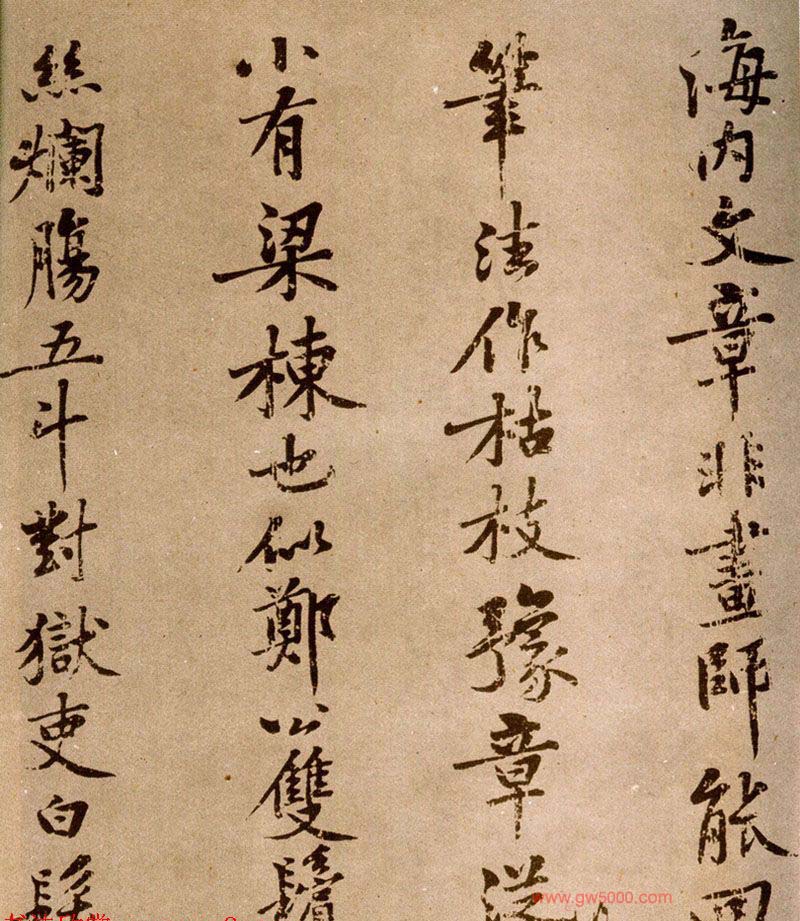 海内文章非畫師能回
筆法作枯枝豫章從
小有梁棟也似鄭公雙鬢
絲爛腸五斗對獄吏白髮
www.gw5000.com